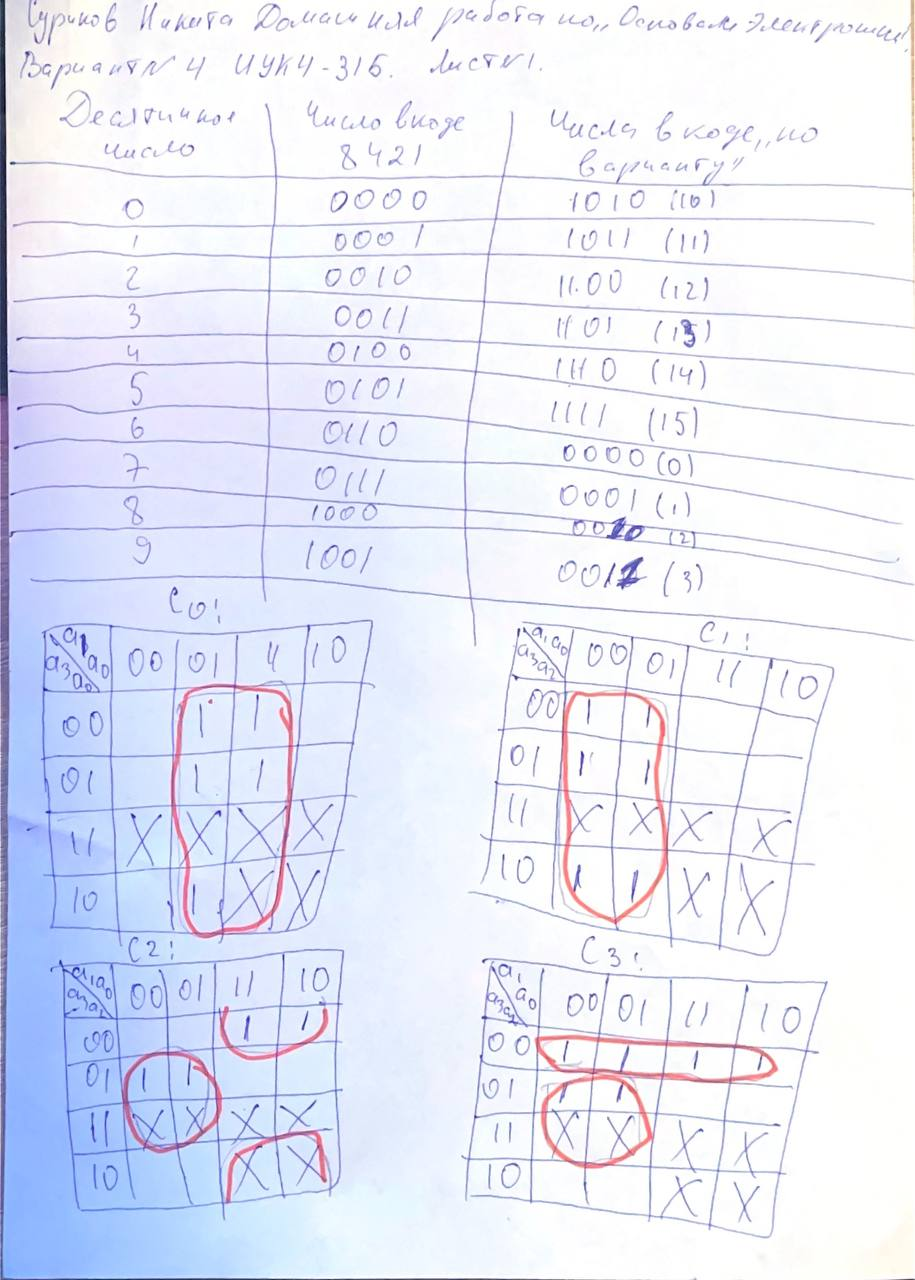 Суриков Никита Домашняя работа по „Основам Электроники"
Вариант №4 ИУК4-31Б. Лист №1.
Десятичное число | Число в коде 8421 | Числа в коде „по варианту"
0 0000 1010 (10)
1 0001 1011 (11)
2 0010 1100 (12)
3 0011 1101 (13)
4 0100 1110 (14)
5 0101 1111 (15)
6 0110 0000 (0)
7 0111 0001 (1)
8 1000 0010 (2)
9 1001 0011 (3)
C0: C1:
a1a0 00 01 11 10
a3a0
00 1 1
01 1 1
11 X X X X
10 1 X X
a1a0 00 01 11 10
a3a2
00 1 1
01 1 1
11 X X X X
10 1 1 X X
C2: C3:
a1a0 00 01 11 10
a3a2
00 1 1
01 1 1
11 X X X X
10 X X
a1a0 00 01 11 10
a3a2
00 1 1 1 1
01 1 1
11 X X X X
10 X X